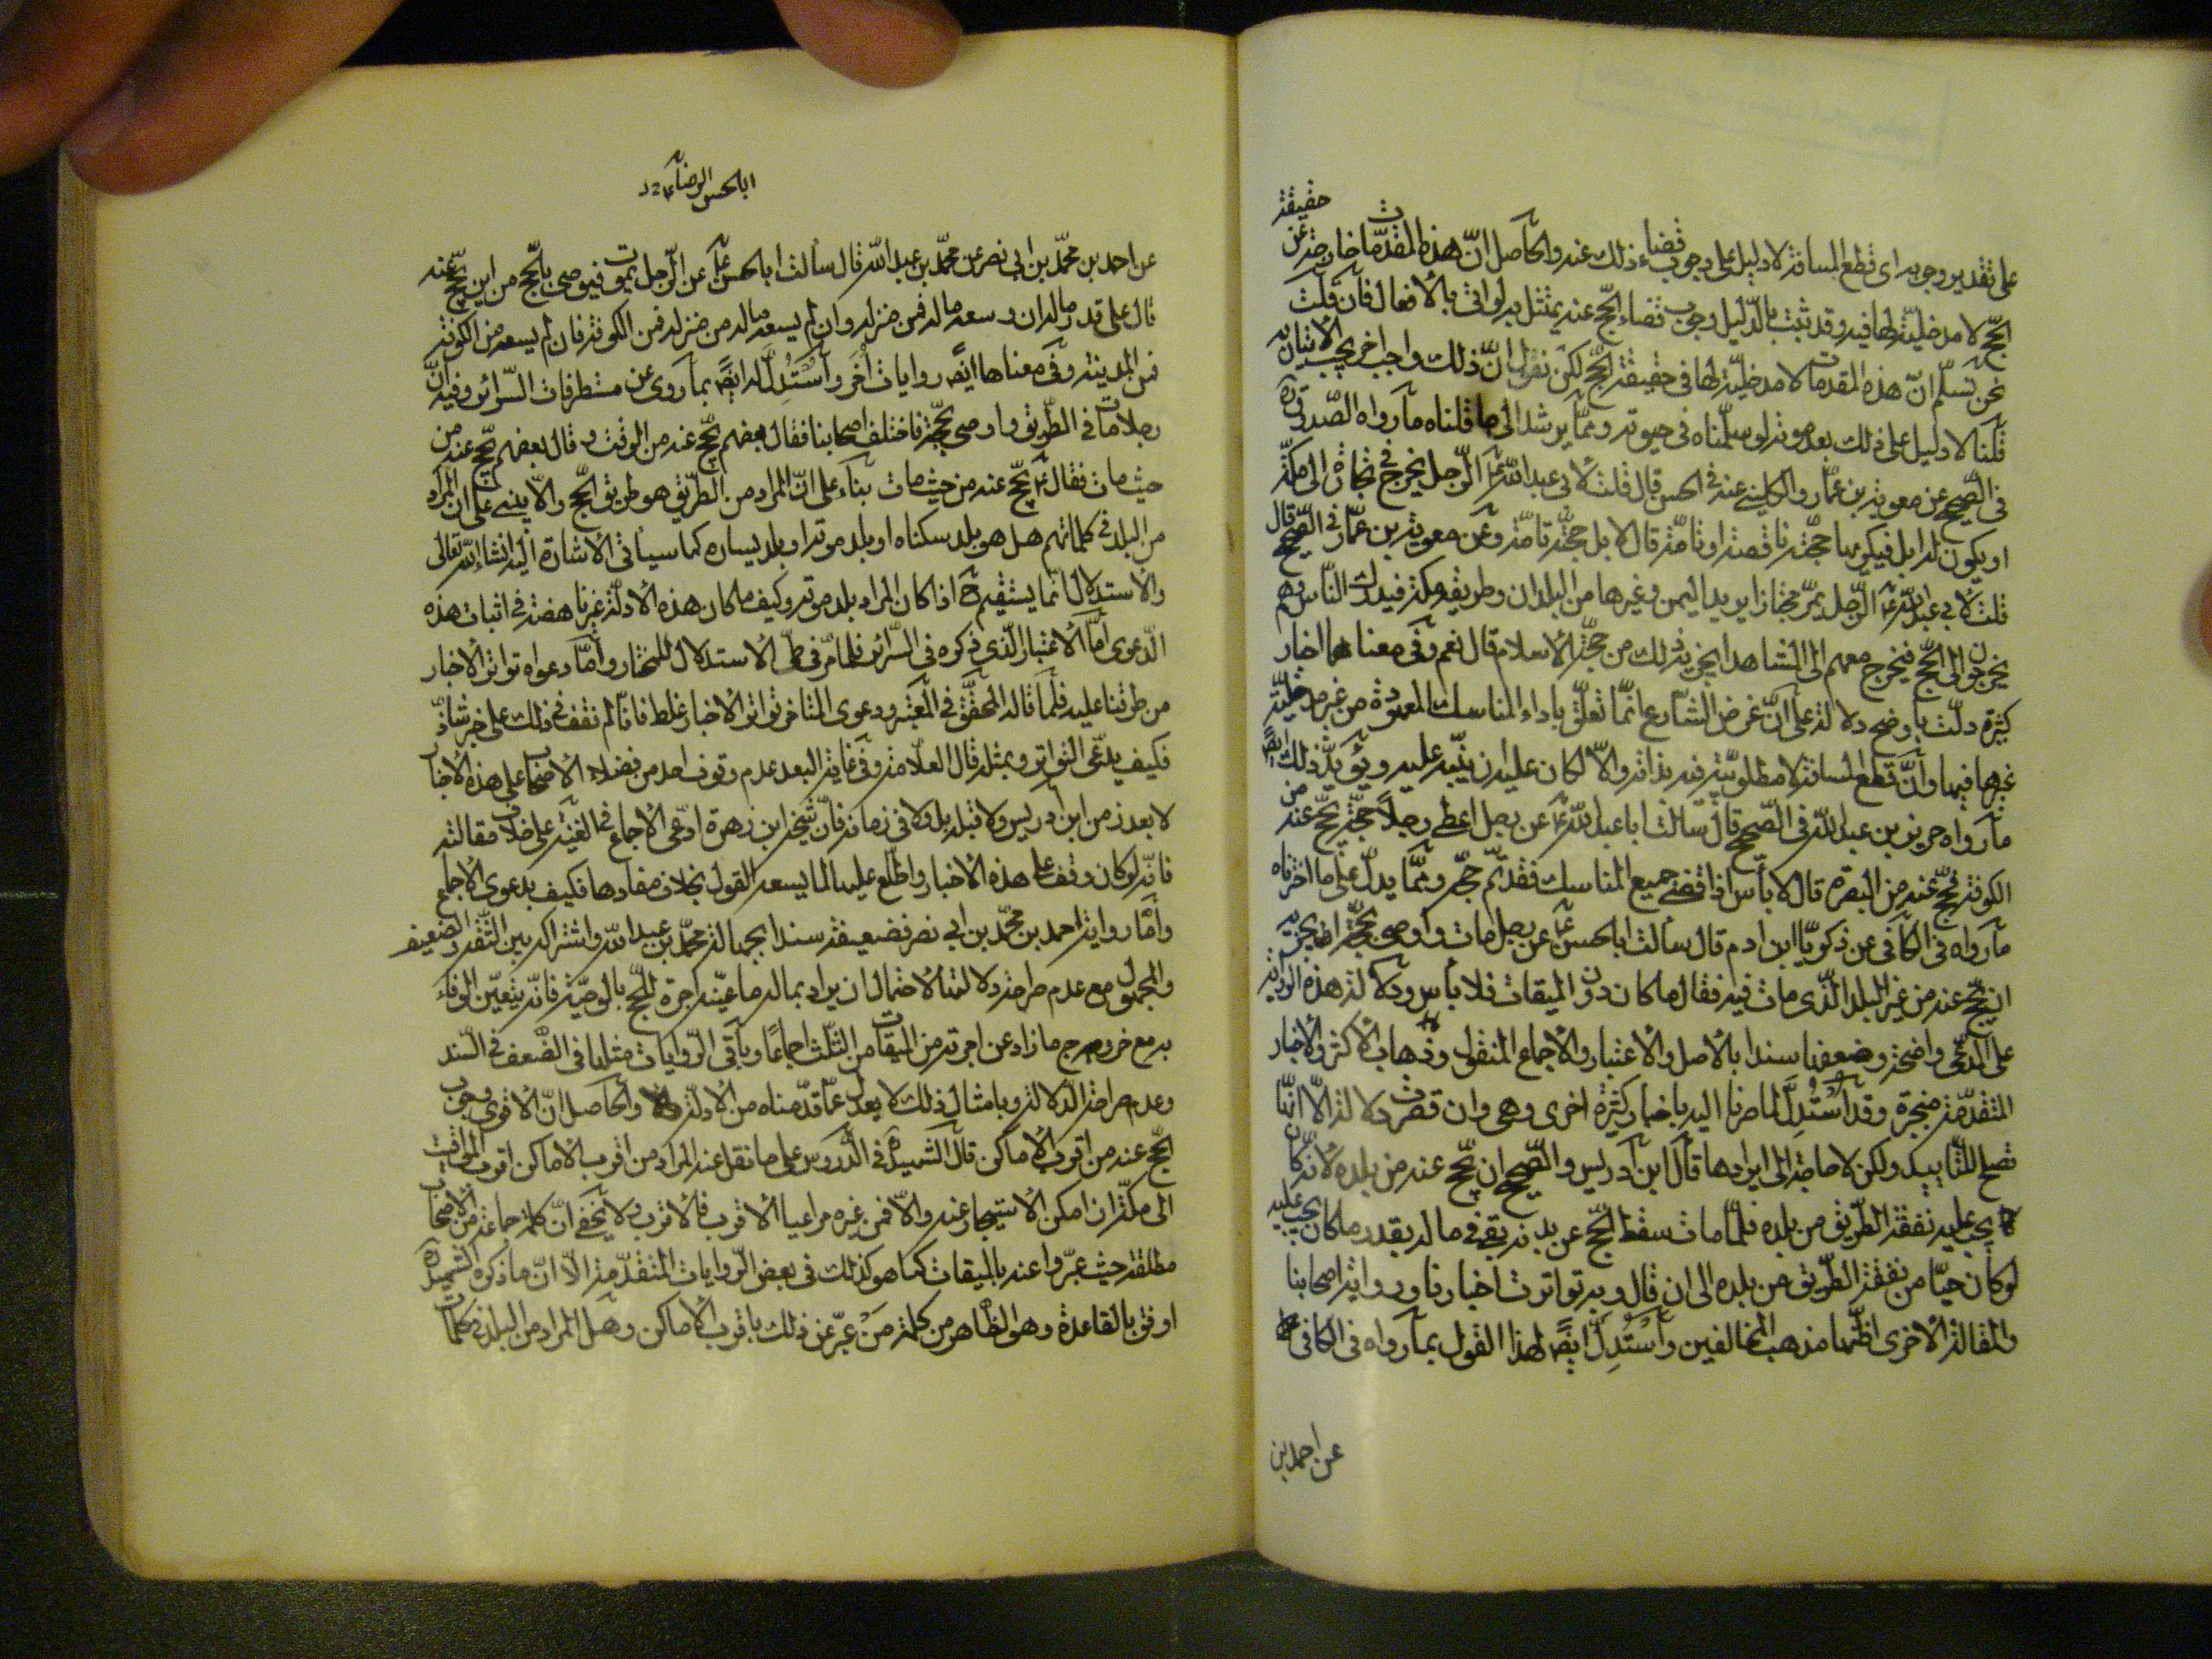 على تقدير وجوبه اى قطع المسافة لا دليل على وجوب قضاء ذلك عنه والحاصل انّ هذه المقدّمات خارجة عن حقيقة
الحجّ لا مدخليّة لها فيه وقد ثبت بالدّليل وجوب قضاء الحجّ عنه يمتثل به لو اتى بالأفعال فان قلت
نحن نسلّم انّ هذه المقدمات لا مدخليّة لها فى حقيقة الحجّ لكن نقول انّ ذلك واجب اخر يجب الاتيان به
قلنا لا دليل على ذلك بعد موته لو سلّمناه فى حيوته وممّا يرشد الى ما قلناه ما رواه الصّدوق ره
فى الصّحيح عن معوية بن عمّار والكلينى عنه فى الحسن قال قلت لأبى عبد اللّه ع الرّجل يخرج فى تجارة الى مكّة
او يكون له ابل فيكريها حجّته ناقصة او تامّة قال لا بل حجّته تامّة وعن معوية بن عمّار فى الصّحيح قال
قلت لأبى عبد اللّه ع الرّجل يمرّ مجتازا يريد اليمن وغيرها من البلدان وطريقه بمكة فيدرك النّاس وهم
يخرجون الى الحجّ فيخرج معهم الى المشاهد ايجزيه ذلك من حجّة الأسلام قال نعم وفى معناهما اخبار
كثيرة دلّت باوضح دلالة على انّ غرض الشّارع انّما تعلّق باداء المناسك المعهودة من غير مدخليّة
غيرها فيها وانّ قطع المسافة لا مطلوبيّة فيه بذاته والّا لكان عليه ان ينبّه عليه ويؤيّد ذلك ايضً
ما رواه حريز بن عبد اللّه فى الصّحيح قال سالت ابا عبد اللّه ع عن رجل اعطى رجلاً حجّة يحجّ عنه من
الكوفة فحجّ عنه من البصرة قال لا بأس اذا قضى جميع المناسك فقد تمّ حجّه وممّا يدلّ على ما اخترناه
ما رواه فى الكافى عن زكريّا ابن ادم قال سألت ابا الحسن ع عن رجل مات واوصى بحجّة ايجزيه
ان يحجّ عنه من غير البلد الّذى مات فيه فقال ما كان دون الميقات فلا بأس ودلالة هذه الرّواية
على المدّعى واضحة وضعفها سندا بالأصل والأعتبار والأجماع المنقول وذهاب الأكثر والأخبار
المتقدّمة منجبرة وقد استُدِلّ لما صرنا اليه باخبار كثيرة اخرى وهى وان قصرت دلالة الّا انّها
تصلح للتّاييد ولكن لا حاجة الى ايرادها قال ابن ادريس والصّحيح ان يحجّ عنه من بلده لأنّه كان
يجب عليه نفقة الطّريق من بلده فلمّا مات سقط الحجّ عن بدنه بقى فى ماله بقدر ما كان يجب عليه
لو كان حيّا من نفقة الطّريق من بلده الى ان قال وبه تواترت اخبارنا ورواية اصحابنا
والمقالة الأخرى اظنّها مذهب المخالفين واستُدِلّ ايضً لهذا القول بما رواه فى الكافى
عن احمد بن
ابا الحسن الرضا ع
عن احمد بن محمّد بن ابى نصر عن محمّد بن عبد اللّه قال سألت ابا الحسن ع عن الرّجل يموت فيوصى بالحّج من اين يحجّ عنه
قال على قدر ماله ان وسعه ماله فمن منزله وان لم يسعه ماله من منزله فمن الكوفة فان لم يسعه من الكوفة
فمن المدينة وفى معناها ايضً روايات أُخَر واسْتُدِلّ له ايضً بما روى عن مستطرفات السّرائر وفيه انّ
رجلا مات فى الطّريق واوصى بحجّة فاختلف اصحابنا فقال بعضهم يحجّ عنه من الوقت وقال بعضهم يحجّ عنه من
حيث مات فقال ع يحجّ عنه من حيث مات بناء على انّ المراد من الطّريق هو طريق الحجّ والّا يبنى على انّ المراد
من البلد فى كلماتهم هل هو بلد سكناه او بلد موته او بلد يساره كما سياتى الأشارة اليه انشاء اللّه تعالى
والأستدلال انّما يستقيم ح اذا كان المراد بلد موته وكيف ما كان هذه الأدلّة غير ناهضة فى اثبات هذه
الدّعوى امّا الأعتبار الّذى ذكره فى السّرائر فلما مرّ فى طىّ الأستدلال للمختار وامّا دعواه تواتر الأخبار
من طرقنا عليه فلما قاله المحقّق فى المعتبر ودعوى المتأخر تواتر الأخبار غلط فانّا لم نقف فى ذلك على خبر شاذّ
فكيف يدّعى التّواتر وبمثله قال العلّامة وفى غاية البعد عدم وقوف احد من فضلاء الأصحاب على هذه الأخبار
لا بعد زمن ابن ادريس ولا قبله بل ولا فى زمانه فانّ شيخه ابن زهرة ادّعى الأجماع فى الغنية على خلاف مقالته
فانّه لو كان وقف على هذه الأخبار واطّلع عليها لما يسعه القول بخلاف مفادها فكيف بدعوى الأجماع
وامّا رواية احمد بن محمّد بن ابى نصر فضعيفة سندا بجهالة محمّد بن عبد اللّه واشتراكه بين الثّقة والضعيف
والمجهول مع عدم صراحة دلالتها لأحتمال ان يراد بماله ما عيّنه اجرة للحّج بالوصيّة فانّه يتعيّن الوفاء
به مع خروج ما زاد عن اجرته من الميقات من الثّلث اجماعًا وباقى الرّوايات مثلها فى الضّعف فى السّند
وعدم صراحة الدّلالة وبامثال ذلك لا يعدل عمّا قدّمناه من الأدلّة والحاصل انّ الأقوى وجوب
الحجّ عنه من اقرب الأماكن قال الشّهيد ره فى الدّروس على ما نقل عنه المراد من اقرب الأماكن اقرب المواقيت
الى مكّة ان امكن الأستيجار عنه والّا فمن غيره مراعيا الأقرب فالأقرب ولا يخفى انّ كلمة جماعة من الأصحاب
مطلقة حيث عبّروا عنه بالميقات كما هو كذلك فى بعض الرّوايات المتقدّمة الّا انّ ما ذكره الشّهيد ره
اوفق بالقاعدة وهو الظّاهر من كلمة مَنْ عبّر عن ذلك باقرب الأماكن وهل المراد من البلد فى كلمات